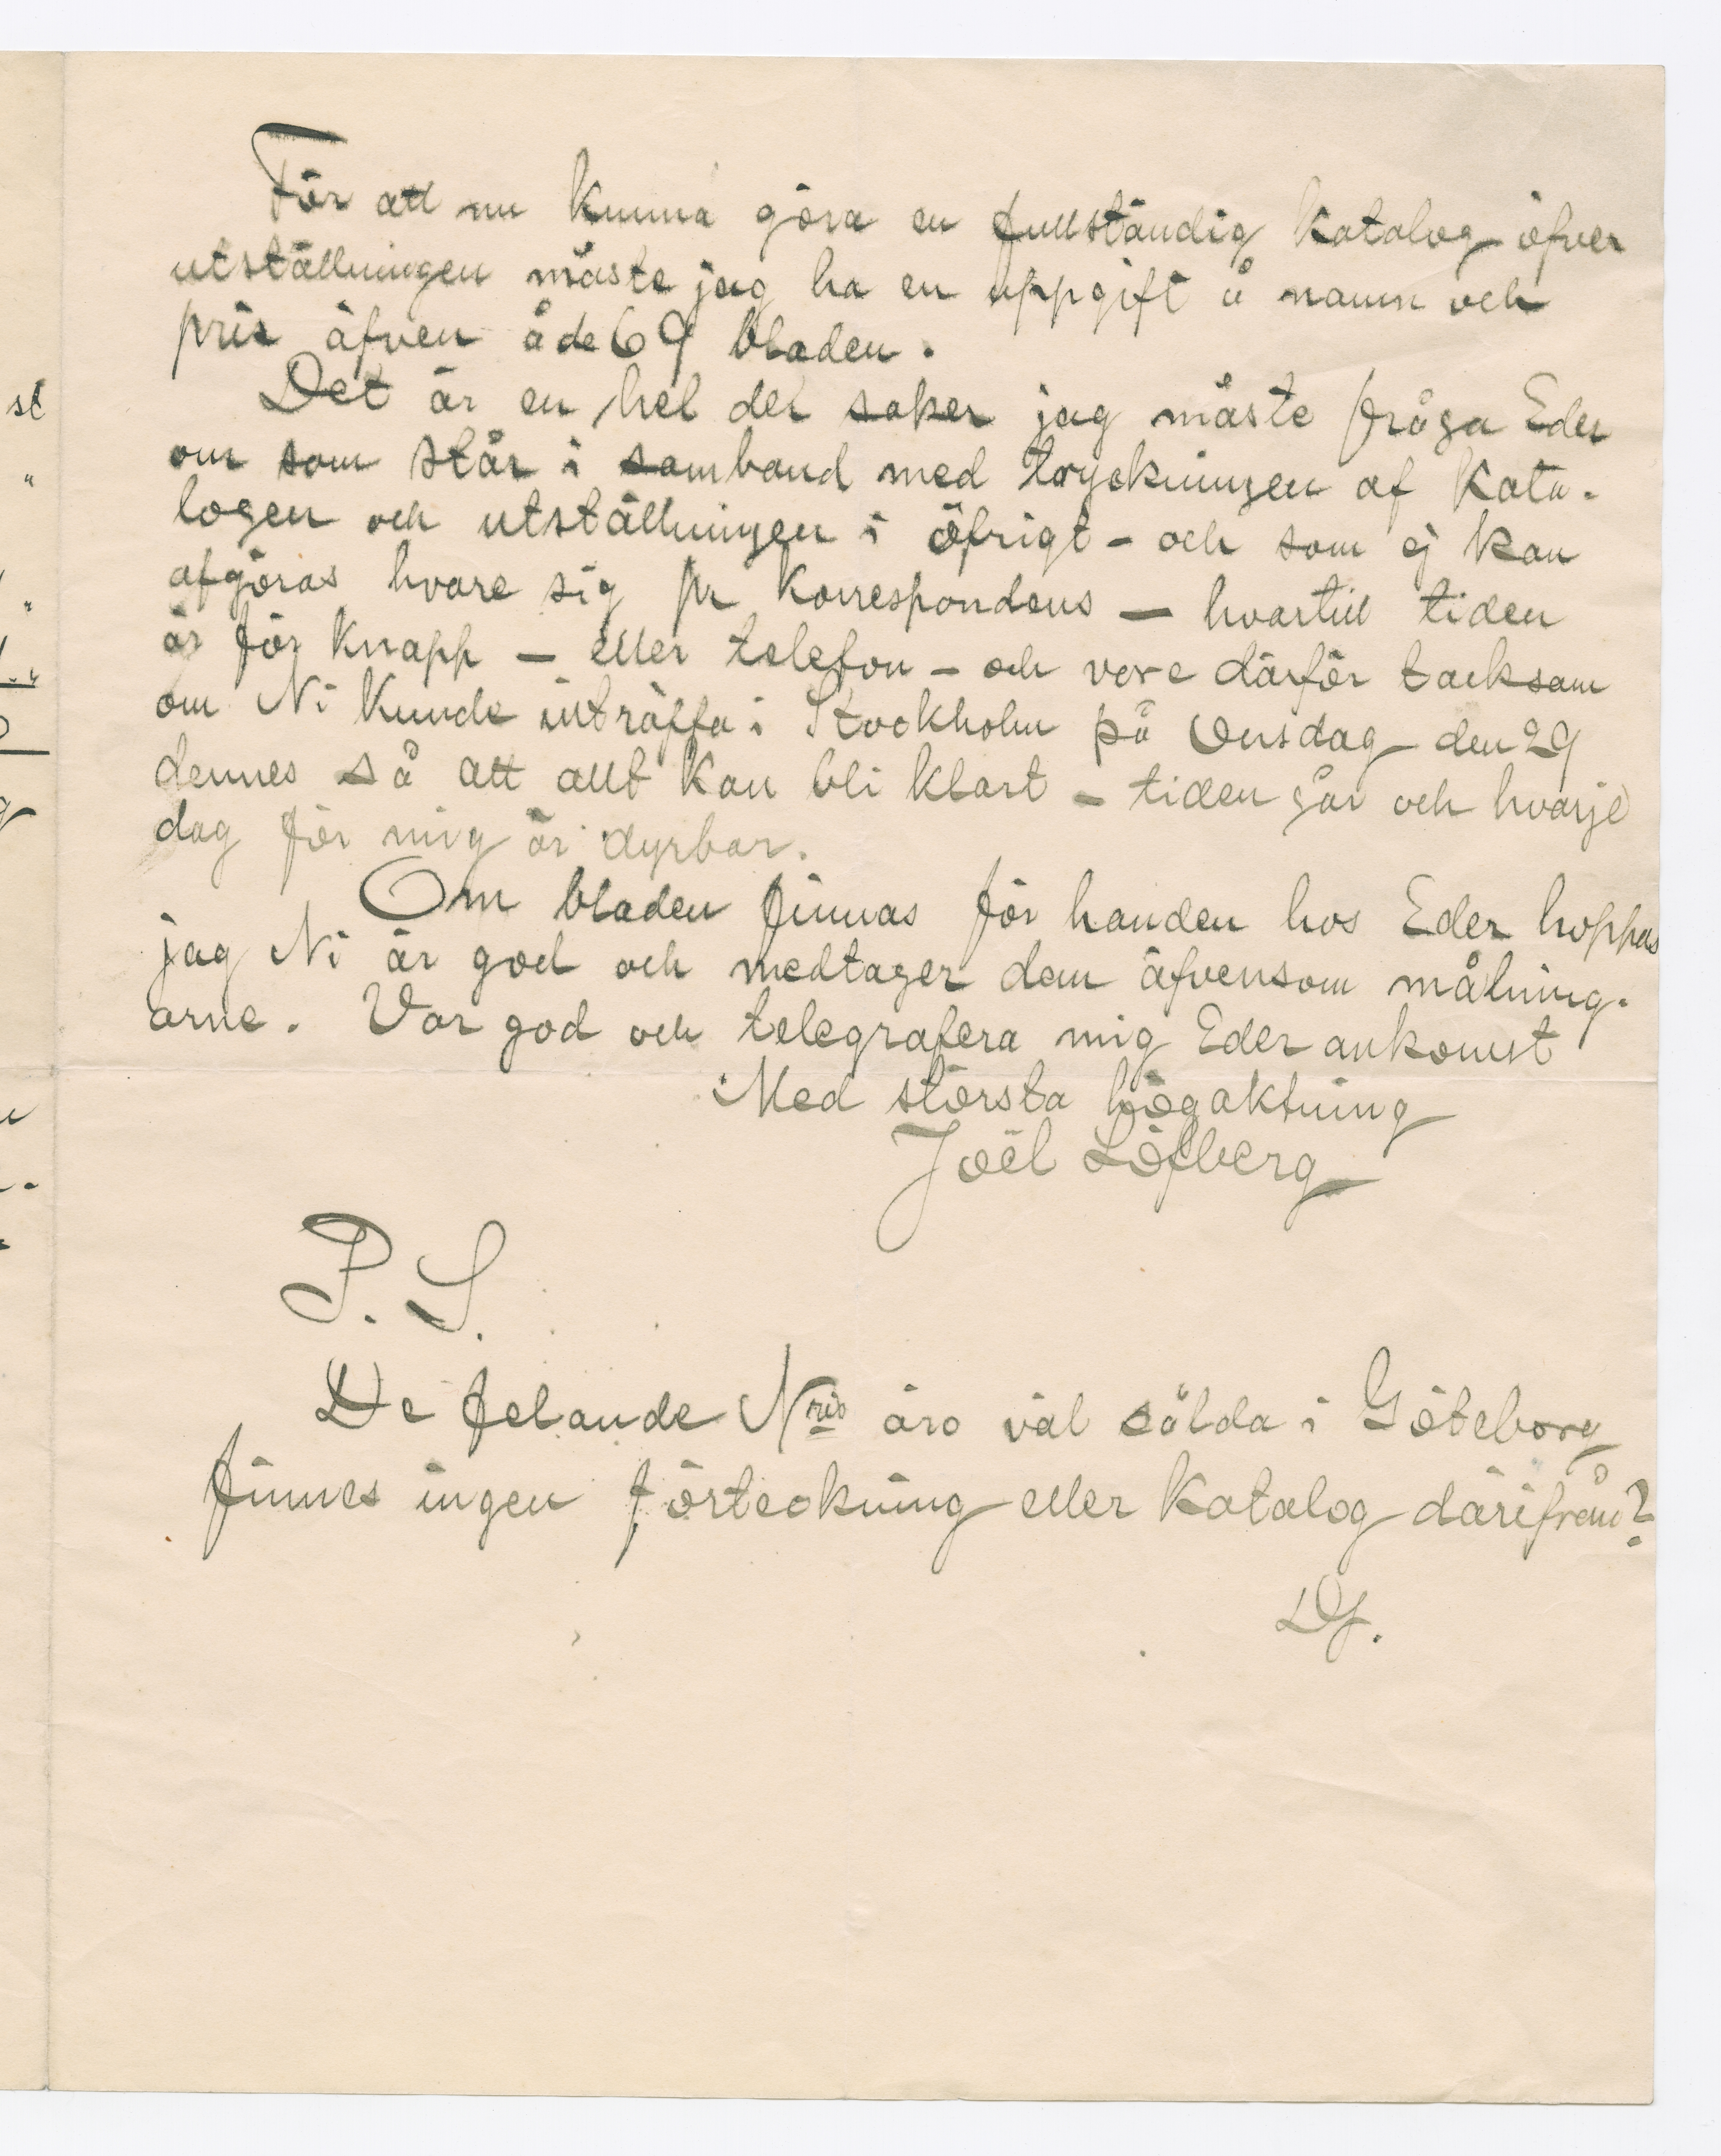 För att nu kunna göra en fullständig katalog öfver
utställningen måste jag ha en uppgift å namn och
pris äfven å de 69 bladen.
Det är en hel del saker jag måste fråga Eder
om som står i samband med tryckningen af kata-
logen och utställningen i öfrigt - och som ej kan
afgöras hvare sig pr korrespondens — hvartill tiden
är för knapp — eller telefon - och vore därför tacksam
om Ni kunde inträffa i Stockholm på Onsdag den 29
dennes så att allt kan bli klart - tiden går och hvarje
dag för mig är dyrbar.
Om bladen finnas för handen hos Eder hoppas
jag Ni är god och medtager dem äfvensom målning-
arne. Var god och telegrafera mig Eder ankomst
Med största högaktning
Joël Löfberg
P. S.
De felande Nris äro väl sålda i Göteborg
finnes ingen förteckning eller katalog därifrån?
DS.
st
"
"